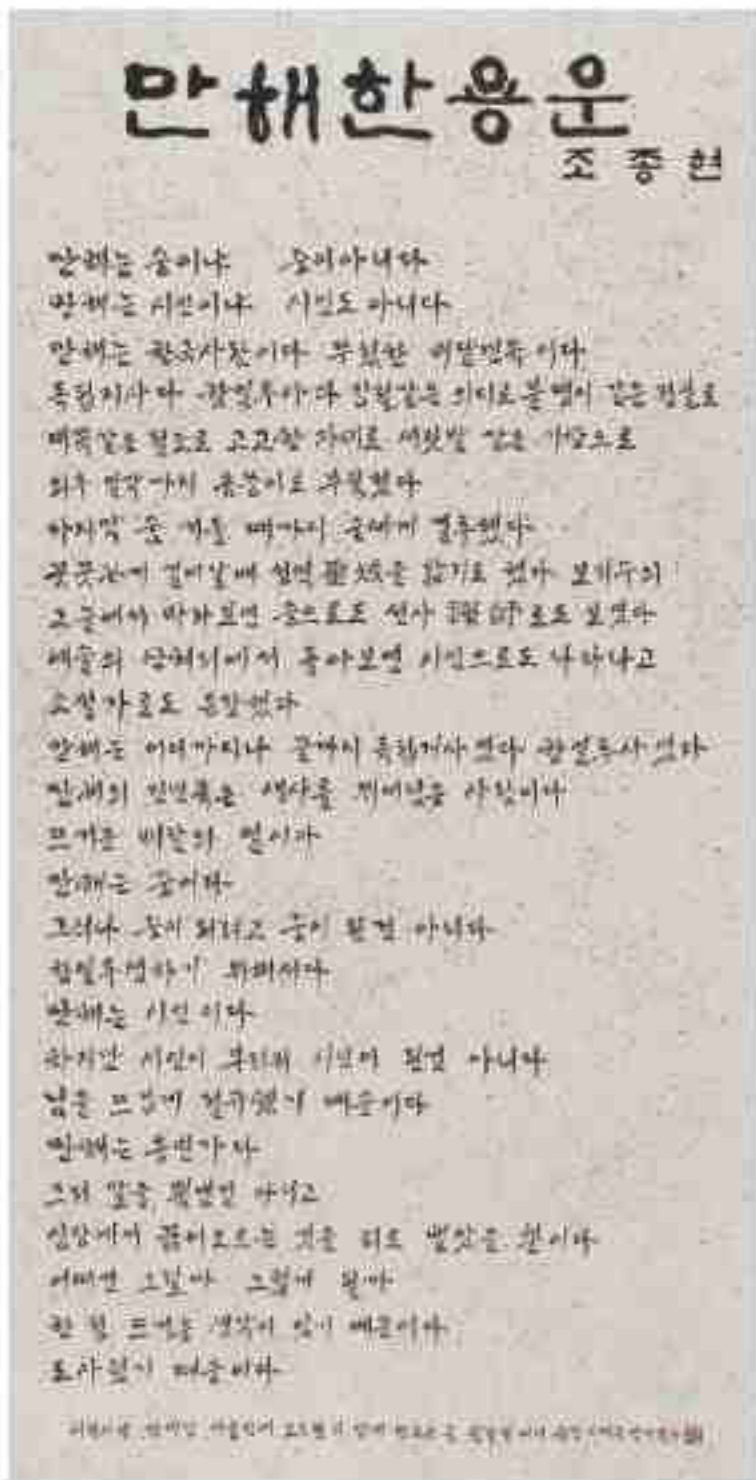 만해한용운
조종현
만해는 중이냐 중이아니다
만해는 시인이냐 시인도 아니다
만해는 한국사람이다 뚜렷한 배달민족이다
독립지사다 항일투사다 강철같은 의지로 불덩이 같은 정열로
대쪽같은 절조로 고고한 자세로 서릿발 같은 기상으로
최후 일각까지 몸뚱이로 부딪쳤다
마지막 숨 거둘 때까지 굳세게 결투했다
꿋꿋하게 걸어갈때 성역聖域을 밟기도 했다 보리수의
그늘에서 바라보면 중으로도 선사禪師로도 보였다
예술의 산허리에서 돌아보면 시인으로도 나타나고
소설가로도 등장했다
만해는 어디까지나 끝까지 독립지사였다 항일투사였다
만해의 진면목은 생사를 뛰어넘은 사람이다
뜨거운 배달의 얼이다
만해는 중이다
그러나 중이 되려고 중이 된건 아니다
항일투쟁하기 위해서다
만해는 시인이다
하지만 시인이 부러워 시인이 된건 아니다
님을 뜨겁게 절규했기 때문이다
만해는 웅변가다
그저 말을 뽐낸건 아니고
심장에서 끓어오르는 것을 피로 뱉았을 뿐이다
어쩌면 그럴까 그렇게 될까
한 점 뜨거운 생각이 있기 때문이다
도사렸기 때문이다